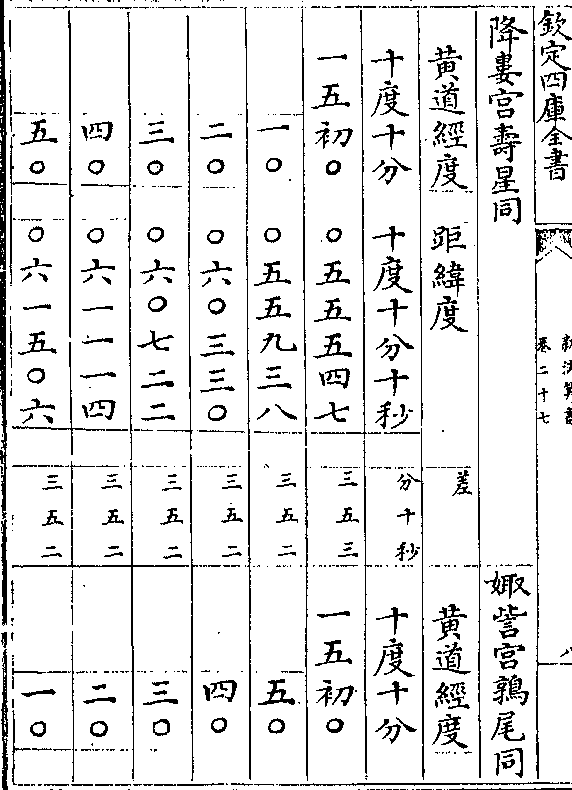 欽定四庫全書
新法算書
卷二十七
八
降婁宮壽星同
娵訾宮鶉尾同
黃道經度 距緯度 差 黃道經度
十度十分 十度十分十秒 分十秒 十度十分
一五初〇 〇五五五四七 三五三 一五初〇
一〇 〇五五九三八 三五二 五〇
二〇 〇六〇三三〇 三五二 四〇
三〇 〇六〇七二二 三五二 三〇
四〇 〇六一一一四 三五二 二〇
五〇 〇六一五〇六 三五二 一〇